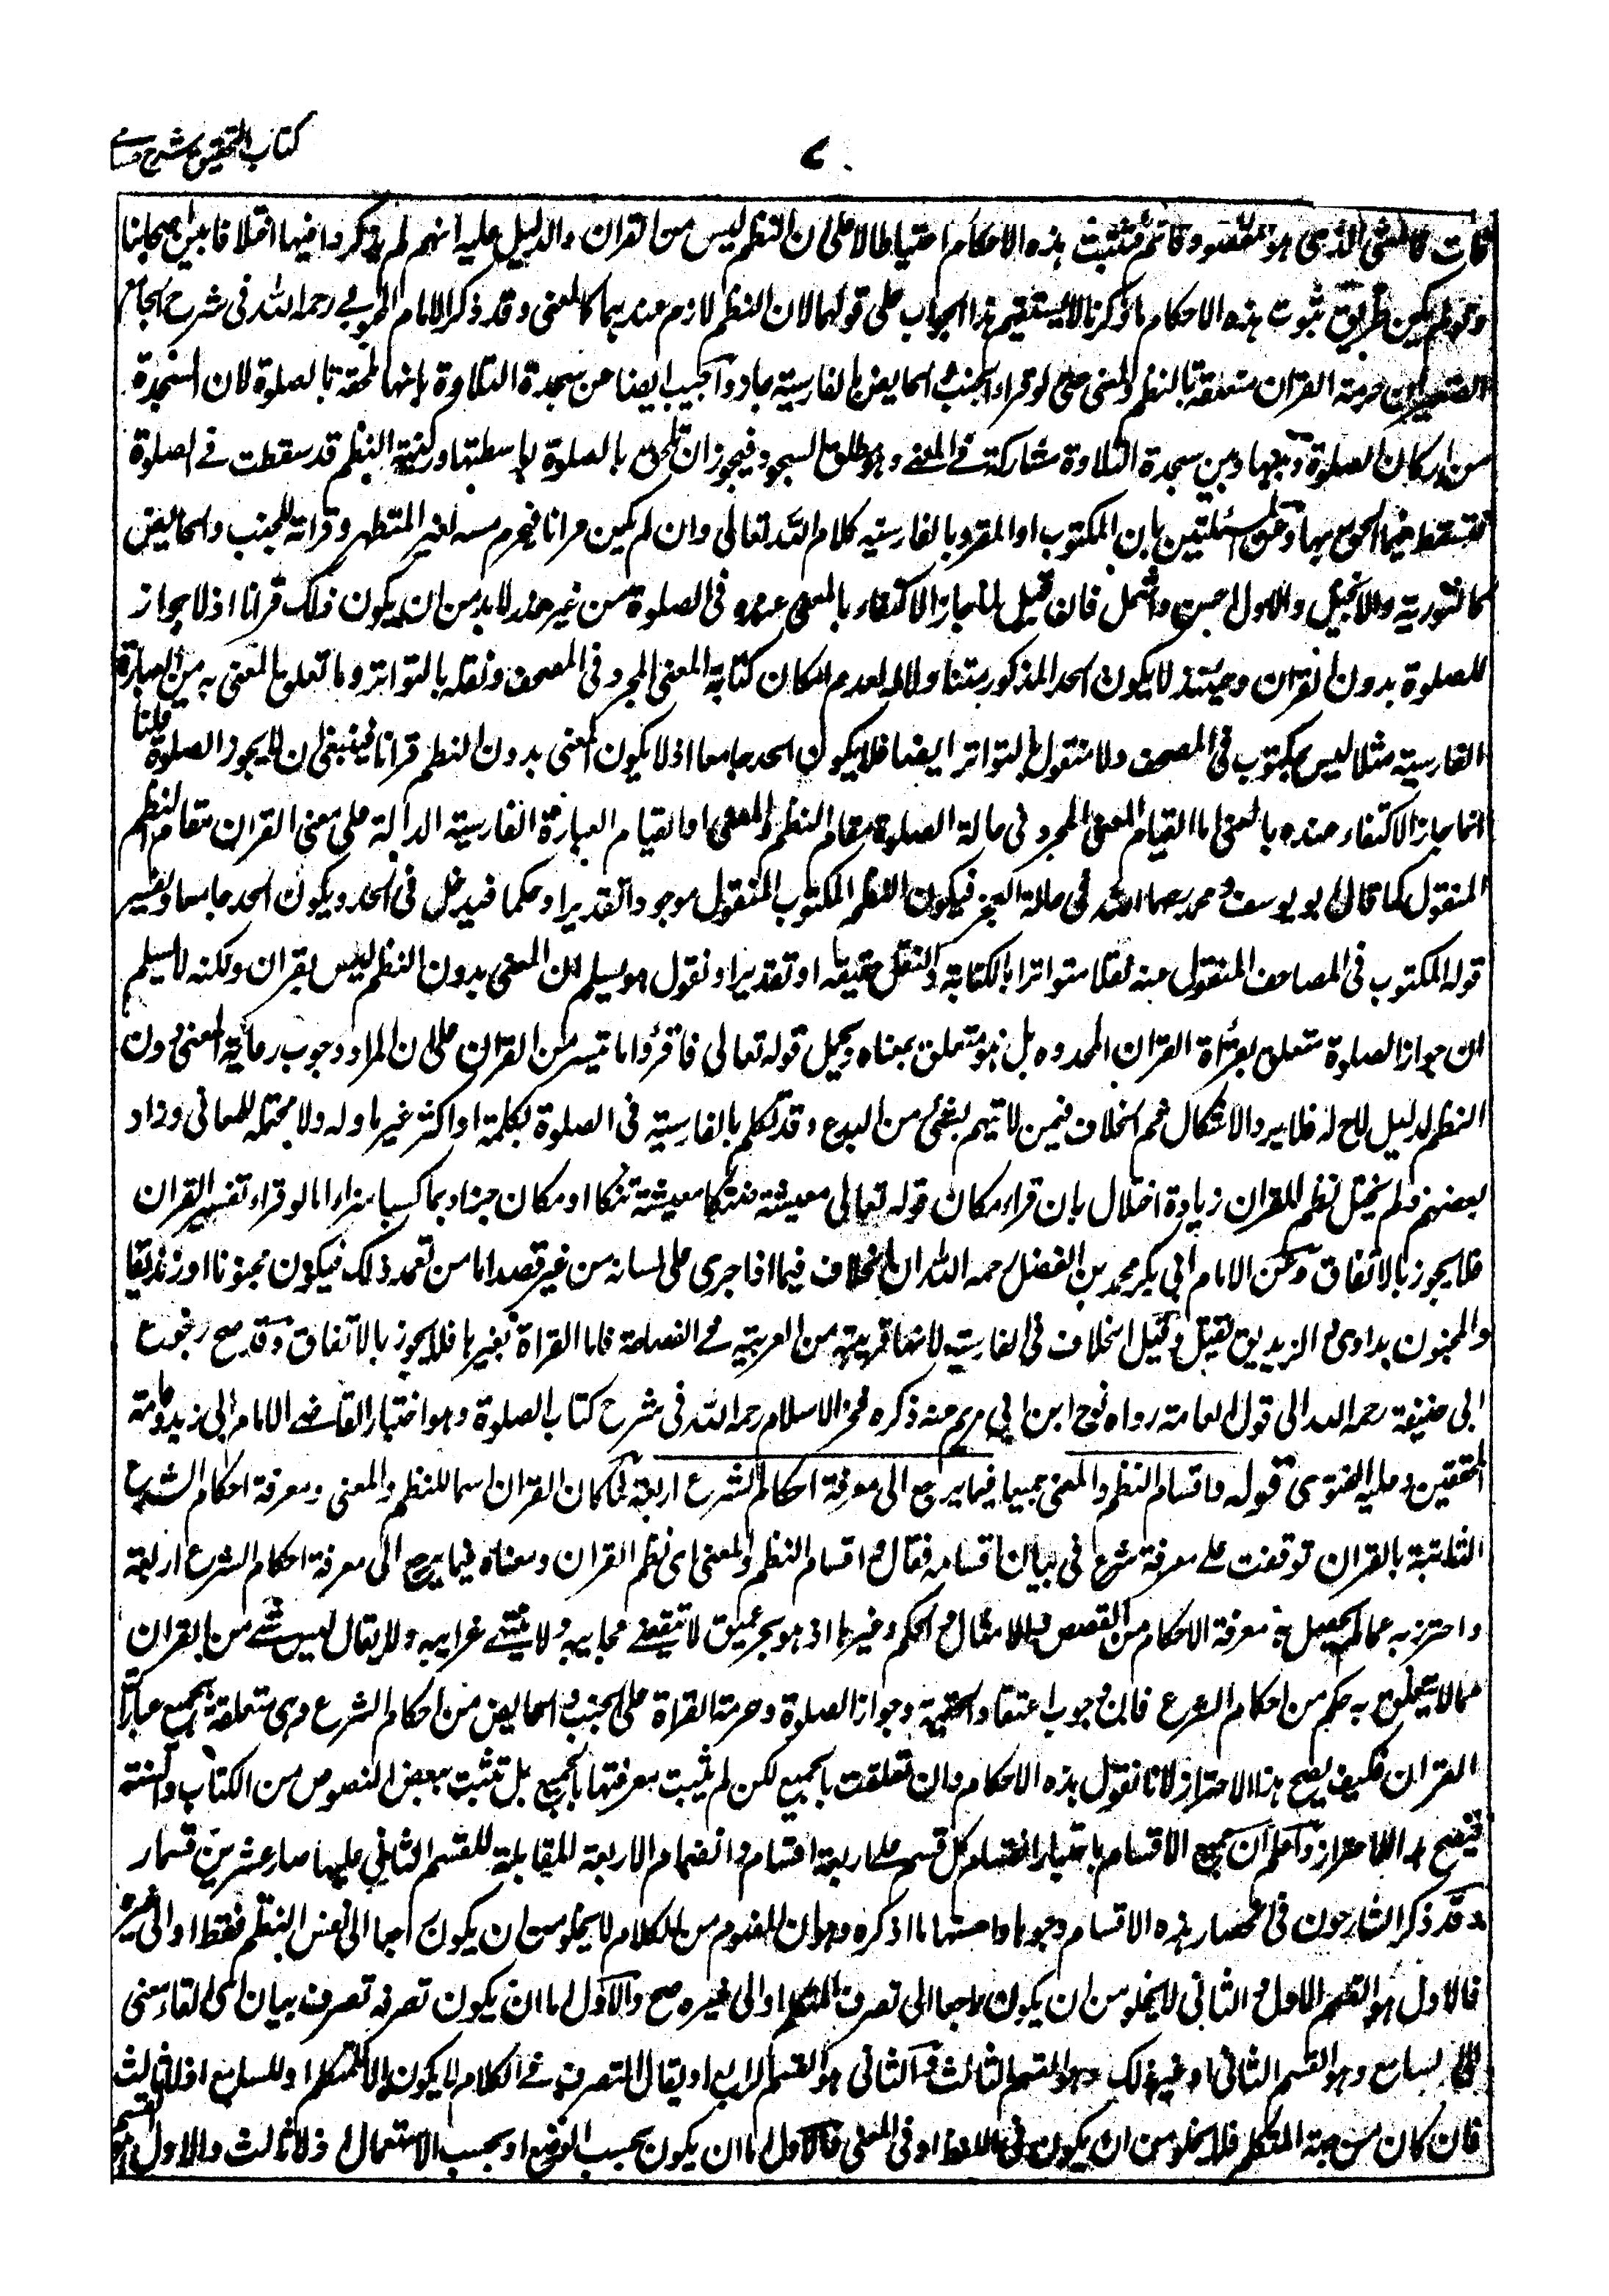 كتاب التحقيق شرح حسامي
٧
فات فالمعنى الذي هو المقصود قائم فتثبت هذه الاحكام احتياطا لا على ان النظم ليس من القران والدليل عليه انهم لم يذكروا فيها اختلافا بين اصحابنا
ولو لم يكن طريق ثبوت هذه الاحكام ما ذكرنا لا يستقيم هذا الجواب على قولهما لان النظم لازم عندهما كالمعنى وقد ذكر الامام المحبوبي رحمه الله في شرح الجامع
الصغير ان حرمة القران متعلقة بالنظم والمعنى حتى لو قراء الجنب او الحايض بالفارسية جاز واجيب ايضا عن سجدة التلاوة بانها ملحقة بالصلوة لان السجدة
من اركان الصلوة وبينها وبين سجدة التلاوة مشاركة في المعنى وهو مطلق السجود فيجوز ان تلحق بالصلوة بواسطتها وركنية النظم قد سقطت في الصلوة
فتسقط فيما الحق بها وعن المسئلتين بان المكتوب او المقرو بالفارسية كلام الله تعالى وان لم يكن قرانا فيحرم مسه لغير المتطهر وقراته للجنب والحايض
كالتورية والانجيل والاول احسن واشمل فان قيل لما جاز الاكتفاء بالمعنى عنده في الصلوة من غير عذر لا بد من ان يكون ذلك قرانا اذ لا جواز
للصلوة بدون القران وحينئذ لا يكون الحد المذكور متناولا له لعدم امكان كتابة المعنى المجرد في المصحف ونقله بالتواتر وما تعلق المعنى به من العبارة
الفارسية مثلا ليس بمكتوب في المصحف ولا منقول بالتواتر ايضا فلا يكون الحد جامعا اذ لا يكون المعنى بدون النظم قرانا فينبغي ان لا يجوز الصلوة قلنا
انما جاز الاكتفاء عنده بالمعنى اما لقيام المعنى المجرد في حالة الصلوة مقام النظم والمعنى او لقيام العبارة الفارسية الدالة على معنى القران مقام النظم
المنقول كما قال ابو يوسف ومحمد رحمهما الله في حالة العجز فيكون النظم المكتوب المنقول موجودا تقديرا وحكما فيدخل في الحد ويكون الحد جامعا وتفسير
قوله المكتوب في المصاحف المنقول عنه نقلا متواترا بالكتابة والنقل حقيقة او تقديرا او نقول هو يسلم ان المعنى بدون النظم ليس بقران ولكنه لا يسلم
ان جواز الصلوة متعلق بقراة القران المحدود بل هو متعلق بمعناه ويحمل قوله تعالى فاقرؤا ما تيسر من القران على ان المراد وجوب رعاية المعنى دون
النظم لدليل لاح له فلا يرد الاشكال ثم الخلاف فيمن لا يتهم بشئ من البدع وقد تكلم بالفارسية في الصلوة بكلمة او اكثر غير ماوله ولا محتملة للمعاني وزاد
بعضهم ولم يختل نظم القران زيادة اختلال بان قراء مكان قوله تعالى معيشة ضنكا معيشة تنكا او مكان جزاء بما كسبا سزاء اما لو قراء تفسير القران
فلا يجوز بالاتفاق وعن الامام ابي بكر محمد بن الفضل رحمه الله ان الخلاف فيما اذا جرى على لسانه من غير قصد اما من تعمد ذلك فيكون مجنونا او زنديقا
والمجنون يداوى والزنديق يقتل وقيل الخلاف في الفارسية لانها قريبة من العربية في الفصاحة فاما القراة بغيرها فلا يجوز بالاتفاق وقد صح رجوع
ابي حنيفة رحمه الله الى قول العامة رواه نوح ابن ابي مريم عنه ذكره فخر الاسلام رحمه الله في شرح كتاب الصلوة وهو اختيار القاضي الامام ابي زيد وعامة
المحققين وعليه الفتوى قوله واقسام النظم والمعنى جميعا فيما يرجع الى معرفة احكام الشرع اربعة لما كان القران اسما للنظم والمعنى ومعرفة احكام الشرع
الثابتة بالقران توقفت على معرفة شرع في بيان اقسامه فقال واقسام النظم والمعنى اى نظم القران ومعناه فيما يرجع الى معرفة احكام الشرع اربعة
واحترز به عما لم يحصل به معرفة الاحكام من القصص والامثال والحكم وغيرها اذ هو بحر عميق لا تنقضي عجايبه ولا تنتهي غرايبه ولا يقال ليس شئ من القران
مما لا يتعلق به حكم من احكام الشرع فان وجوب اعتقاد الحقية وجواز الصلوة وحرمة القراة على الجنب والحايض من احكام الشرع وهي متعلقة بجميع عبارات
القران فكيف يصح هذا الاحتراز لانا نقول هذه الاحكام وان تعلقت بالجميع لكن لم يثبت معرفتها بالجميع بل تثبت ببعض النصوص من الكتاب والسنة
فيصح الاحتراز واعلم ان جميع الاقسام باعتبار انقسام كل قسم على اربعة اقسام وانضمام الاربعة المقابلة للقسم الثاني عليها صار عشرين قسما
وقد ذكر الشارحون في انحصار هذه الاقسام وجوها واحسنها ما اذكره وهو ان المفهوم من الكلام لا يخلو من ان يكون راجعا الى نفس النظم فقط او الى غيره
فالاول هو القسم الاول والثاني لا يخلو من ان يكون راجعا الى تصرف المتكلم او الى غيره صح والاول اما ان يكون تصرفه تصرف بيان اى القاء معنى
الى السامع وهو القسم الثاني او غير ذلك وهو القسم الثالث والثاني هو القسم الرابع او يقال التصرف في الكلام لا يكون الا للمتكلم او للسامع اذ لا ثالث
فان كان من جهة المتكلم فلا يخلو من ان يكون في اللفظ او في المعنى فالاول اما ان يكون بحسب الوضع او بحسب الاستعمال اذ لا ثالث والاول هو القسم